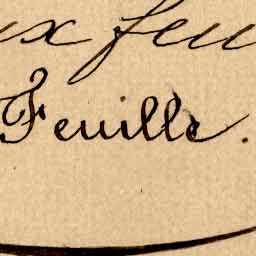 x feu
Feuille.